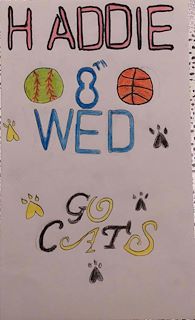 H ADDIE
8TH
WED
GO
CATS